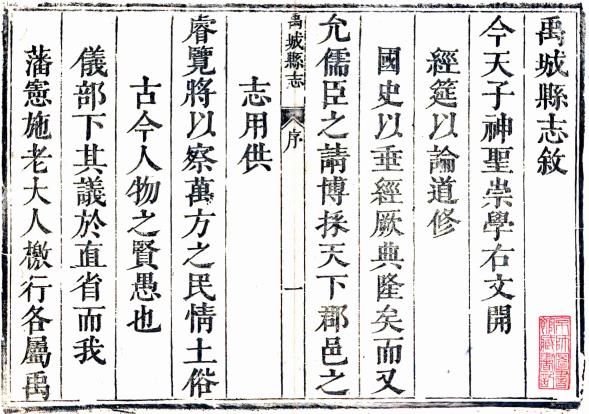 禹城縣志敘
今天子神聖崇學右文開
經筵以論道修
國史以垂經厥典隆矣而又
允儒臣之請博採天下郡邑之
禹城縣志 序 一
志用供
睿覽將以察萬方之民情土俗
古今人物之賢愚也
儀部下其議於直省而我
藩憲施老大人檄行各屬禹
京師圖書
館藏書記